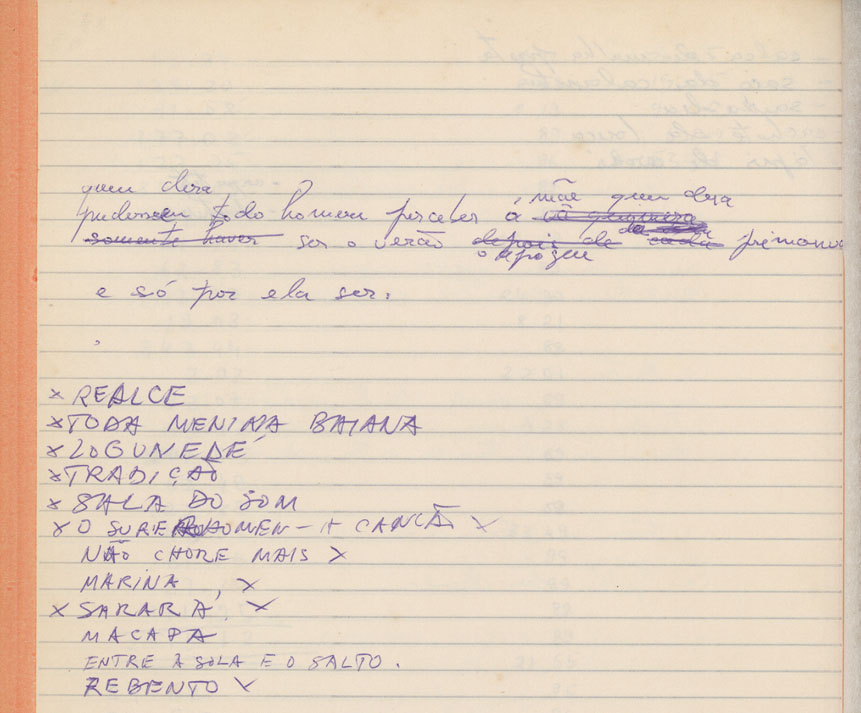 quem dera
pudessem todo homem perceber ó mãe quem dera
somente haver ser o verão depois de cada da primavera
o apogeu
e só por ela ser.
x REALCE
x TODA MENINA BAIANA
x LOGUNEDÉ
x TRADIÇÃO
x SALA DO SOM
x O SUPERHOMEN - A CANÇÃ x
NÃO CHORE MAIS x
MARINA, x
x SARARÁ, x
MACAPA
ENTRE A SOLA E O SALTO.
REBENTO x